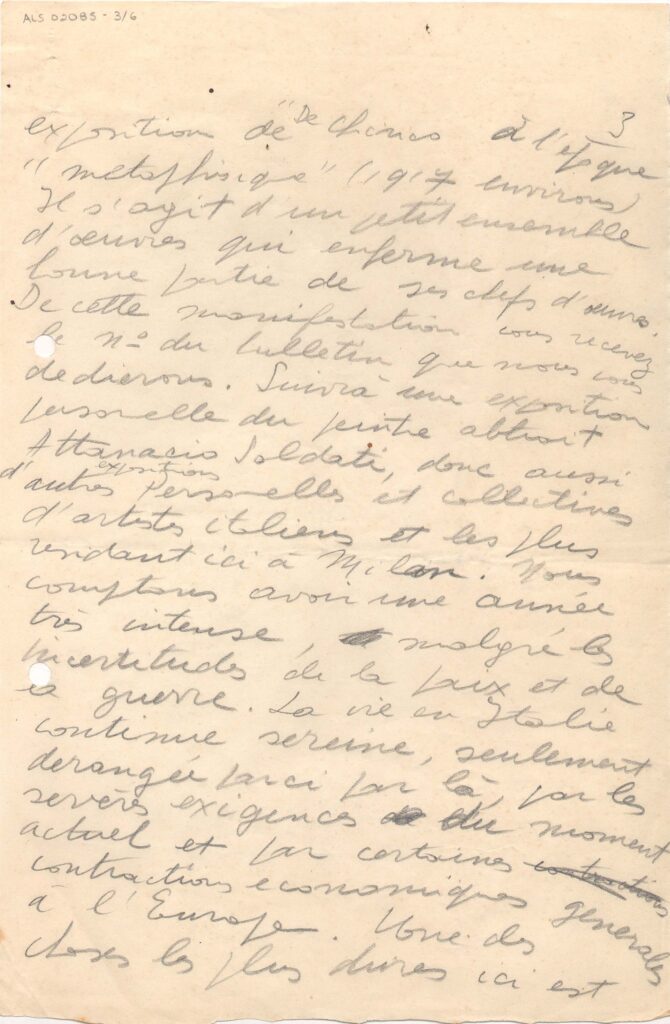 ALS 02085 - 3/6
3
exposition de "De Chirico à l'époque
"metaphisique" (1917 environs)
Il s'agit d'un petit ensemble
d'œuvres qui enferme une
bonne partie de ses chefs d'œuvre.
De cette manifestation vous recevez
le nº du bulletin que nous vous
dedierons. Suivrà une exposition
personelle du peintre abtrait
Attanacio Soldati, donc aussi
d'autres expositions personelles et collectives
d'artistes italiens et les plus
residant ici à Milan. Nous
comptons avoir une année
très intense, malgré les
incertitudes de la paix et de
la guerre. La vie en Italie
continue sereine, seulement
derangée parci par là, par les
sevères exigences du moment
actuel et par certaines contractions
contractions economiques generales
à l'Europe. Une des
choses les plus dures ici est